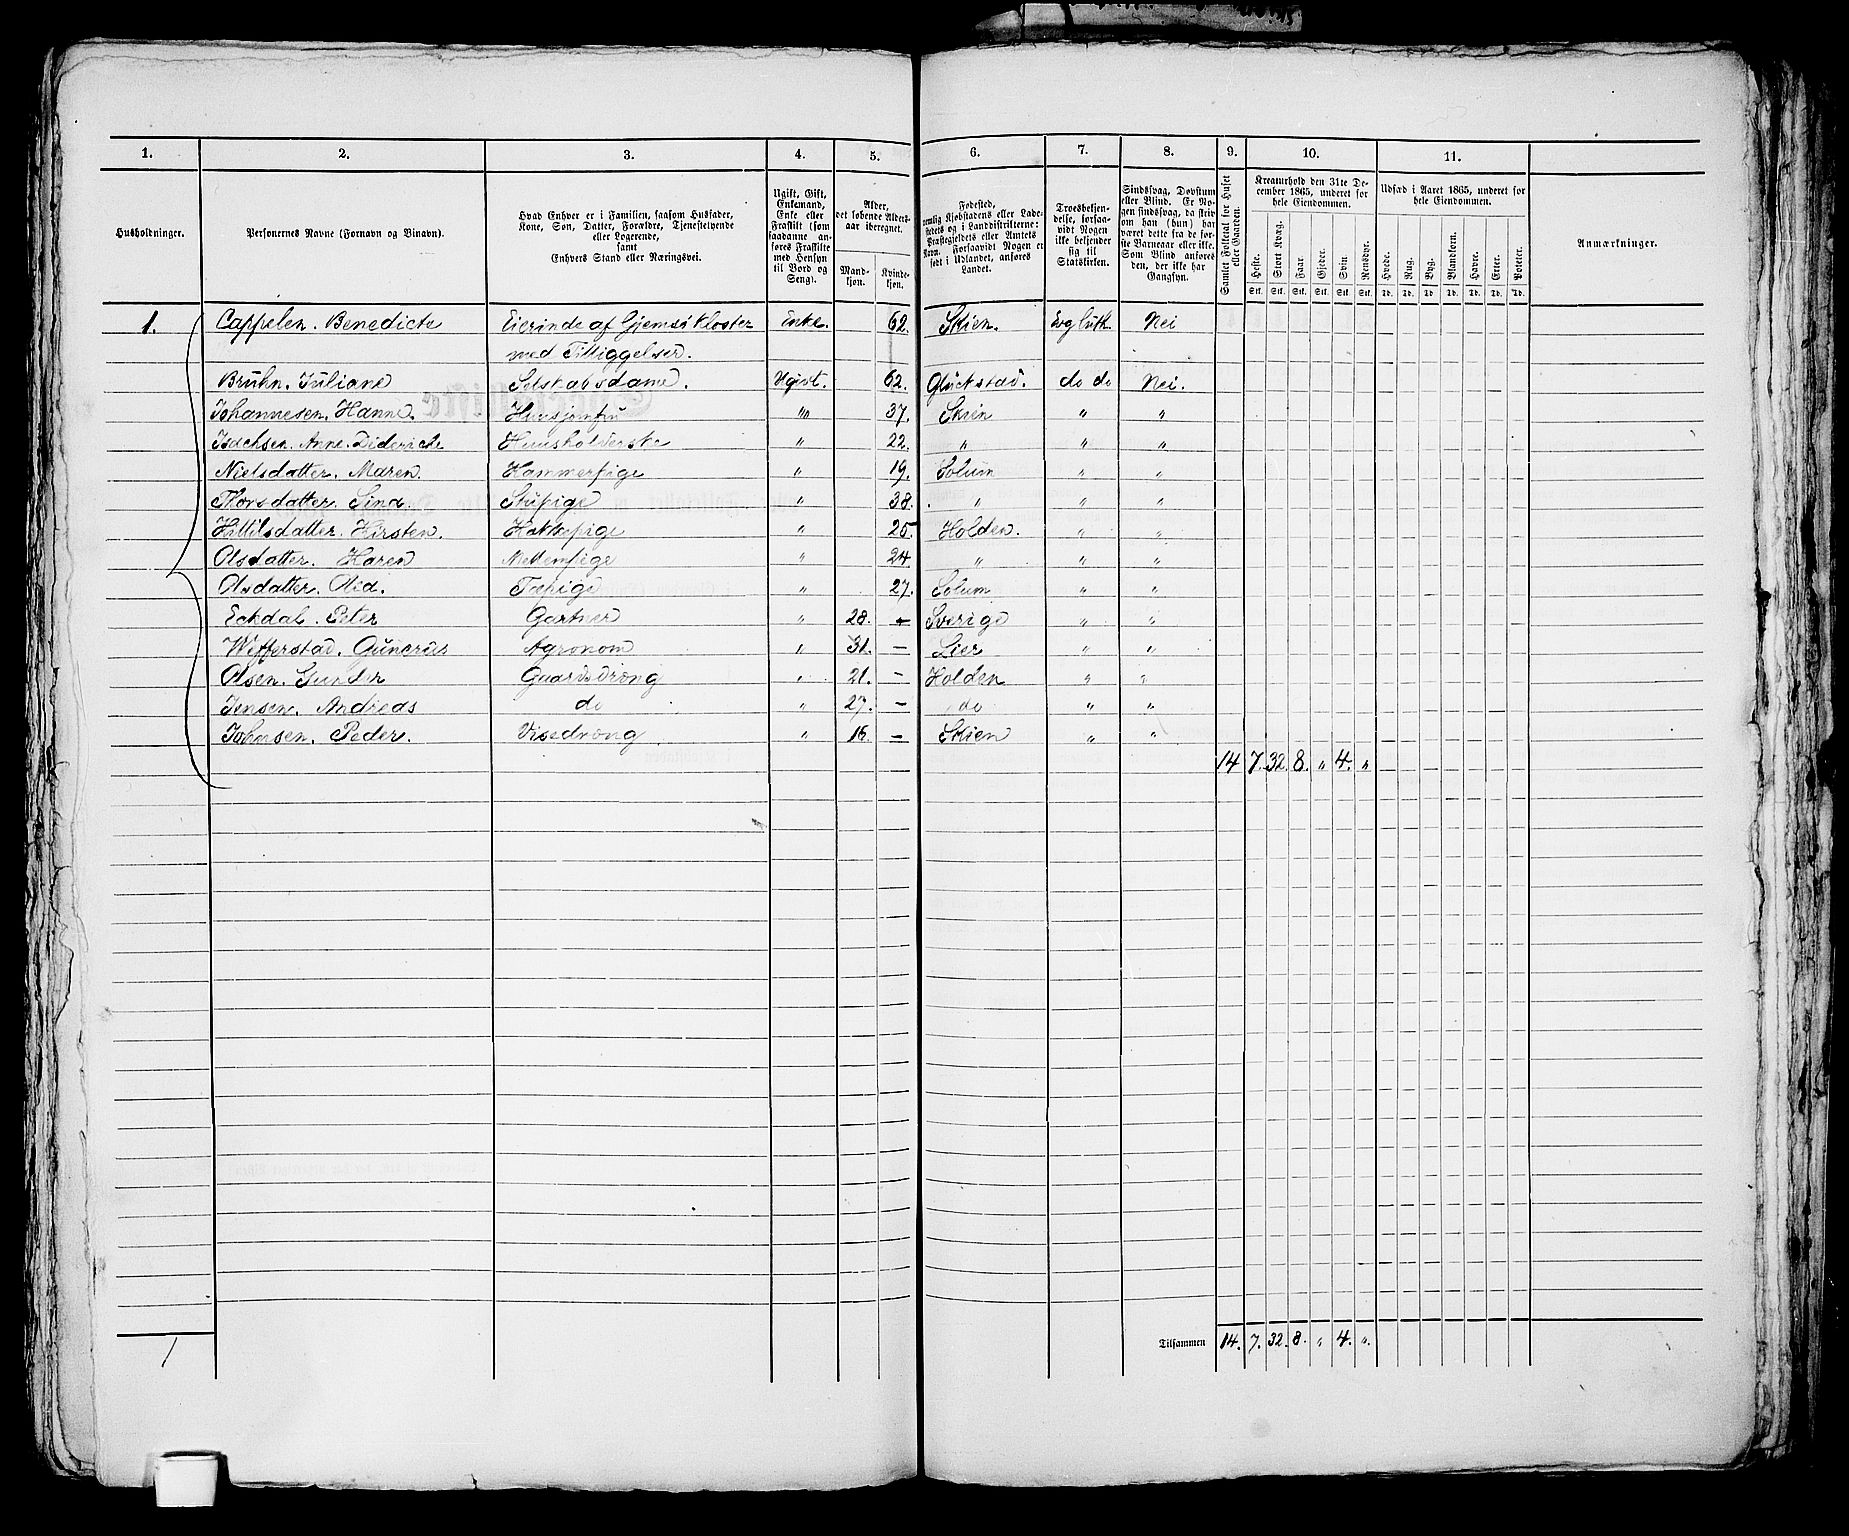 1. 2. 3. 4. 5. 6. 7. 8. 9. 10. 11.
Husholdninger. | Personernes Navne (Fornavn og Binavn). | Hvad Enhver er i Familien, saasom Husfader, Kone, Søn, Datter, Forældre, Tjenestetyende eller Logerende, samt Enhvers Stand eller Næringsvei. | Ugift, Gift, Enkemand, Enke eller Fraskilt (som saadanne anføres Fraskilte med Hensyn til Bord og Seng). | Alder, det løbende Alders-aar iberegnet. Mandkjøn. Kvindekjøn. | Fødested, nemlig Kjøbstadens eller Ladestedets og i Landdistrikterne: Præstegjeldets eller Amtets Navn. Forsaavidt Nogen er født i Udlandet, anføres Landet. | Troesbekjendelse, forsaavidt Nogen ikke bekjender sig til Statskirken. | Sindssvag, Døvstum eller Blind. Er Nogen sindssvag, da skrives, om han (hun) har været dette fra de første Barneaar eller ikke. Som Blind anføres den, der ikke har Gangsyn. | Samlet Folketal for Huset eller Gaarden. | Kreaturhold den 31te December 1865, underet for hele Eiendommen. Heste. Stort Kvæg. Faar. Gjeder. Svin. Rensdyr. | Udsæd i Aaret 1865, underet for hele Eiendommen. Hvede. Rug. Byg. Blandkorn. Havre. Erter. Poteter. | Anmærkninger.
Stk. Stk. Stk. Stk. Stk. Stk. Td. Td. Td. Td. Td. Td. Td.
1. Cappelen. Benedicte Eierinde af Gjemsø Kloster Enke. 62. Skien. Evg luth. Nei
med Tilliggelser.
Bruhn. Juliane Selskabsdame. Ugivt. 62. Glückstad. do do Nei.
Johannesen. Hanne. Huusjomfru " 37. Skien " "
Isachsen. Anne. Dideriche Huusholderske " 22. " " "
Nielsdatter. Maren. Kammerpige " 19. Solum " "
Thorsdatter. Sina. Stupige " 38. " " "
Kittilsdatter. Kirsten. Kokkepige " 25. Holden. " "
Olsdatter. Karen " 24 " " "
Olsdatter. " 27. Solum " "
Eckdal. Peter Gartner " 28. - Sverige " "
Wefferstad. Gunerius Agronom " 31. - Lier " "
Olsen. Gunder Gaardsdræng " 21. - Holden " "
Jensen. Andreas do " 27. - do " "
Johnsen. Peder. Visedræng " 16. - Skien " "
14 7. 32. 8. " 4. "
Tilsammen 14. 7. 32. 8. " 4. ".
1